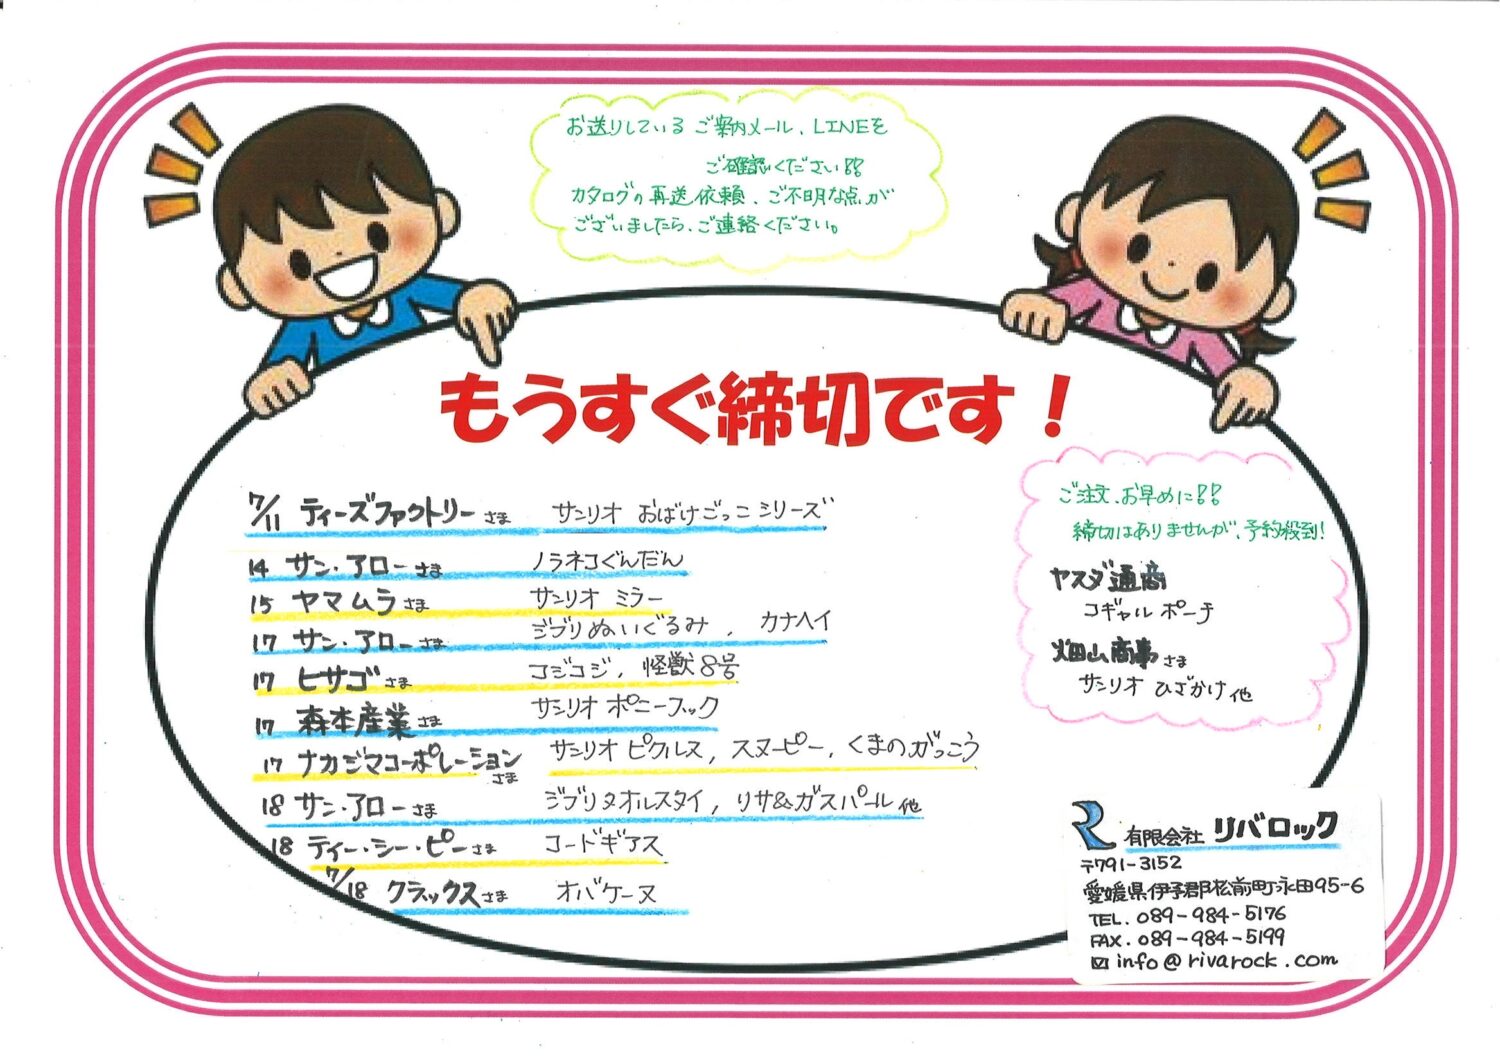 お送りしている ご案内メール、LINEを
ご確認ください!!
カタログの再送依頼、ご不明な点が
ございましたら、ご連絡ください。
もうすぐ締切です！
7/11 ティーズファクトリーさま サンリオ おばけごっこ シリーズ
14 サン・アローさま ノラネコぐんだん
15 ヤマムラさま サンリオ ミラー
17 サン・アローさま ジブリぬいぐるみ、カナヘイ
17 ヒサゴさま コジコジ, 怪獣8号
17 森本産業さま サンリオ ポニーフック
17 ナカジマコーポレーションさま サンリオ ピクルス, スヌーピー, くまのがっこう
18 サン・アローさま ジブリタオルスタイ, リサ&ガスパール他
18 ティー・シー・ピーさま コードギアス
7/18 クラックスさま オバケーヌ
ご注文、お早めに!!
締切はありませんが、予約殺到!
ヤスダ通商
コギャル ポーチ
畑山商事さま
サンリオ ひざかけ他
有限会社 リバロック
〒791-3152
愛媛県伊予郡松前町永田95-6
TEL. 089-984-5176
FAX. 089-984-5199
✉ info@rivarock.com